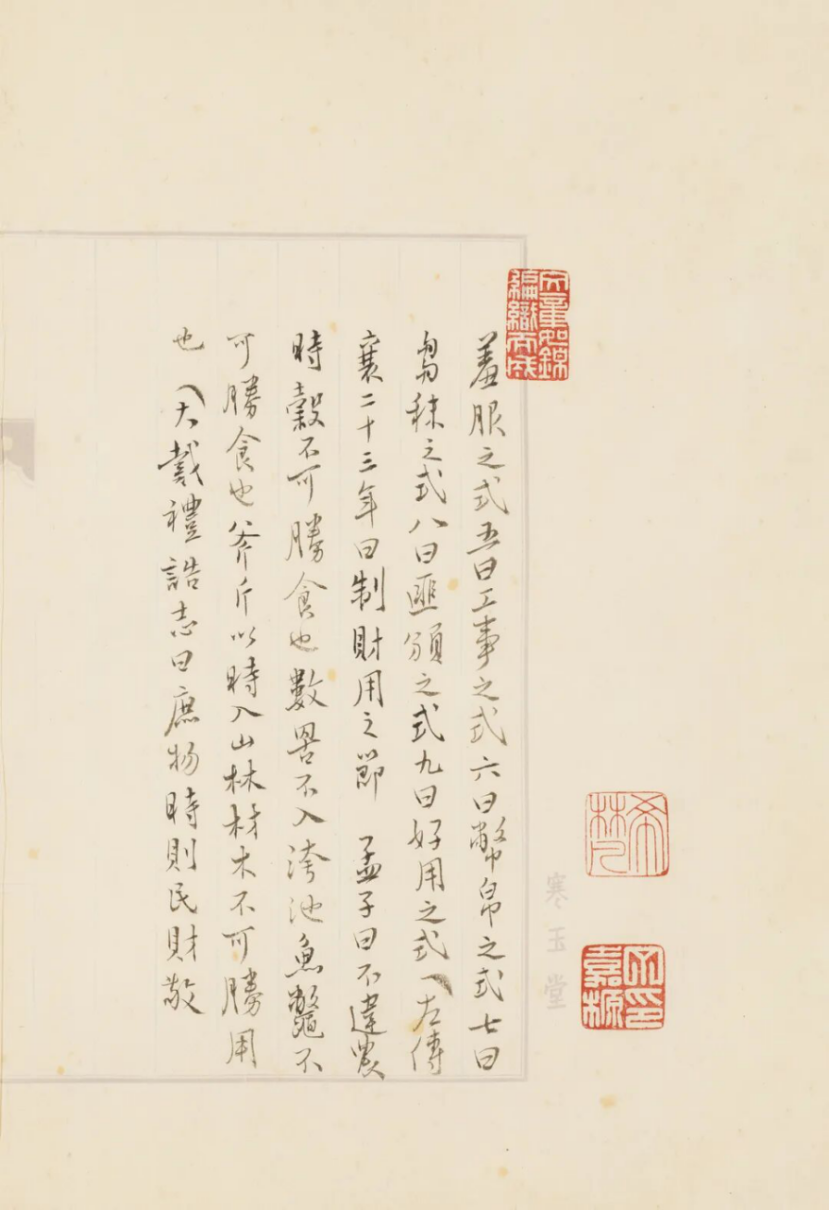 羞服之式五曰工事之式六曰幣帛之式七曰
芻秣之式八曰匪頒之式九曰好用之式 左傳
襄二十三年曰制財用之節 孟子曰不違農
時穀不可勝食也數罟不入洿池魚鼈不
可勝食也斧斤以時入山林材木不可勝用
也 大戴禮誥志曰庶物時則民財敬
寒玉堂
文章如錦
組織而成